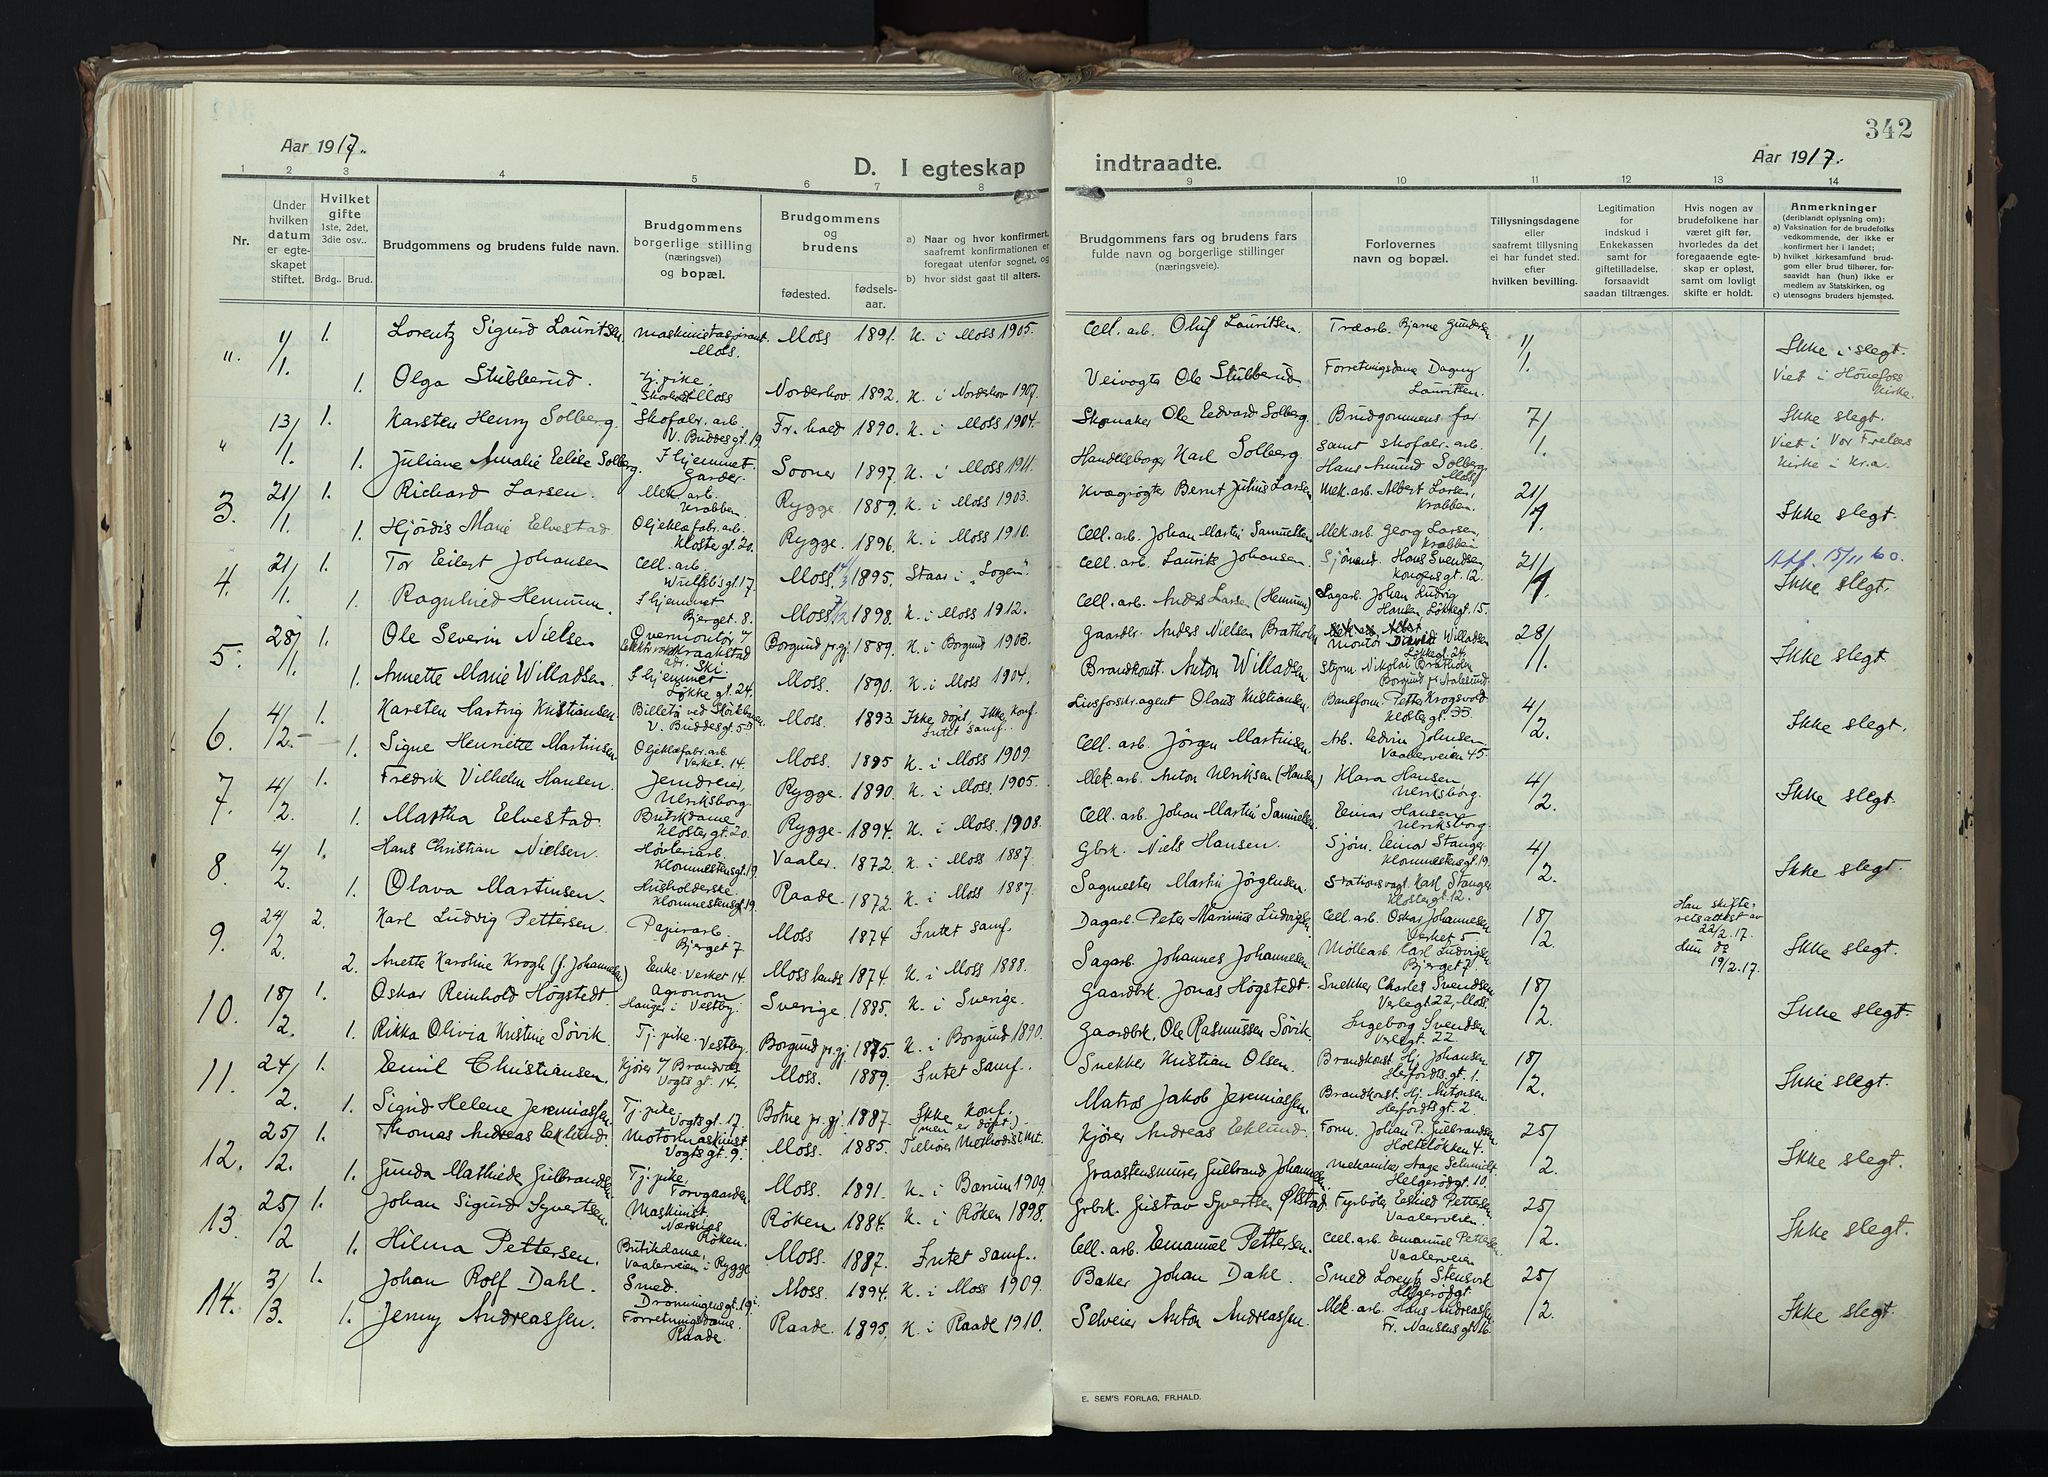 342
Aar 1917.
D. I egteskap indtraadte.
Aar 1917.
1 2 3 4 5 6 7 8 9 10 11 12 13 14
Nr.
Under hvilken datum er egteskapet stiftet.
Hvilket gifte 1ste, 2det, 3die osv..
Brdg.. Brud.
Brudgommens og brudens fulde navn.
Brudgommens borgerlige stilling (næringsvei) og bopæl.
Brudgommens og brudens
fødested.
fødselsaar.
a) Naar og hvor konfirmert, saafremt konfirmationen er foregaat utenfor sognet, og
b) hvor sidst gaat til alters.
Brudgommens fars og brudens fars fulde navn og borgerlige stillinger (næringsveie).
Forlovernes navn og bopæl.
Tillysningsdagene eller saafremt tillysning ei har fundet sted. efter hvilken bevilling.
Legitimation for indskud i Enkekassen samt for giftetilladelse, forsaavidt saadan tiltrænges.
Hvis nogen av brudefolkene har været gift før, hvorledes da det foregaaende egteskap er opløst, samt om lovligt skifte er holdt.
Anmerkninger (deriblandt oplysning om):
a) Vaksination for de brudefolks vedkommende, der ikke er konfirmert her i landet;
b) hvilket kirkesamfund brudgom eller brud tilhører, forsaavidt han (hun) ikke er medlem av Statskirken, og
c) utensogns bruders hjemsted.
" 1/1. 1. Lorentz Sigurd Lauritsen. Maskinistaspirant Moss. Moss 1891. K. i Moss 1905. Cell. arb. Oluf Lauritsen. Træarb. Bjarne Gundersen 1/1. Ikke i slegt.
1. Olga Stubberud. Tj. pike, Moss Norderhov 1892. K. i Norderhov 1907. Veivogter Ole Stubberud Forretningsdame Dagny Lauritsen. Viet i Hønefoss Kirke.
" 13/1. 1. Karsten Henry Solberg. Skofabr. arb. V. Buddesgt. 19 Fr.hald 1890. K. i Moss 1904. Skomaker Ole Edvard Solberg. Brudgommens far 7/1. Ikke slegt.
1. Juliane Amalie Elise Solberg. I hjemmet. Garder. Sooner 1897. K. i Moss 1911. Handelsborger Karl Solberg samt skofabr. arb. Hans Amund Solberg Moss Viet i Vor Frelsers Kirke i Kr.a.
3. 21/1. 1. Richard Larsen. Mek. arb. Krabben. Rygge. 1889. K. i Moss 1903. Kvægrøgter Bernt Julius Larsen Mek. arb. Albert Larsen, Krabben. 21/1. Ikke slegt.
1. Hjördis Marie Elvestad. Oljeklæfabr. arb. Klostergt. 20. Rygge. 1896. K. i Moss 1910. Cell. arb. Johan Martin Samuelsen Mek. arb. Georg Larsen, Krabben
4. 21/1. 1. Tor Eilert Johansen Cell. arb. Wulfsbgt. 17. Moss 14/3 1895. Staar i "Logen". Cell. arb. Laurits Johansen Sjömand Hans Svendsen Kongensgt. 12. 21/1. Att. 15/11 60. Ikke slegt.
1. Ragnhild Hemnum. I hjemmet Bjerget 8. Moss 7/12 1898. K. i Moss 1912. Cell. arb. Anders Larsen (Hemnum) Sagarb. Johan Ludvig Hansen Løkkegt. 15.
5. 28/1. 1. Ole Severin Nielsen Overmontör Kraakstad Ski Borgund pr.gj. 1889. K. i Borgund 1903. Gaardbr. Anders Nielsen Bratholm Montør David Willadsen Løkkegt. 24. 28/1. Ikke slegt.
1. Annette Marie Willadsen. I hjemmet Løkkegt. 24. Moss. 1890. K. i Moss 1904. Brandkonst. Anton Willadsen Styrm Nikolai Bratholm Borgund pr Aalesund.
6. 4/2. 1. Karsten Hartvig Kristiansen. V. Buddesgt. 53 Moss. 1893. Ikke döpt, Ikke konf. Intet samf. Livsforsikr. agent Olaus Kristiansen Baneform. Petter Krogsvold Klostergt. 35. 4/2. Ikke slegt.
1. Signe Henriette Martinsen Oljeklæfabr. arb. Verket. 14. Moss. 1895 K. i Moss 1909. Cell. arb. Jörgen Martinsen Arb. Edvin Johnsen Vaalerveien 45.
7. 4/2. 1. Fredrik Vilhelm Hansen. Jerndreier, Ulriksborg. Rygge. 1890. K. i Moss 1905. Mek. arb. Anton Ulriksen (Hansen) Klara Hansen Ulriksborg. 4/2. Ikke slegt.
1. Martha Elvestad. Butikdame Klostergt. 20. Rygge 1894. K. i Moss 1908. Cell. arb. Johan Martin Samuelsen. Einar Hansen Ulriksborg.
8. 4/2. 1. Hans Christian Nielsen. Høvleriarb. Klommestensgt. 19. Vaaler. 1872. K. i Moss 1887. Gbrk. Niels Hansen. Sjöm. Einar Stanger Klommestensgt. 19. 4/2. Ikke slegt.
1. Olava Martinsen. Husholderske Klommestensgt. 19. Raade. 1872. K. i Moss 1887. Sagmester Martin Jörgensen. Stationsvogt. Karl Stanger Klostergt. 12.
9. 24/2. 2. Karl Ludvig Pettersen. Papirarb. Bjerget 7 Moss 1874 Intet samf. Dagarb. Peter Marinius Ludvigsen Cell. arb. Oskar Johannesen Verket 5 18/2. Han skifteretsattest av 22/2. 17. Ikke slegt.
2. Anette Karoline Krogh (f. Johannesen) Enke. Verket 14. Moss lands. 1874. K. i Moss 1888. Sagarb. Johannes Johannesen Möllearb. Karl Ludvigsen Bjerget 7. Hun do 19/2. 17.
10. 18/2. 1. Oskar Reinhold Högstedt. Agronom Hauger i Vestby. Sverige. 1885. K. i Sverige. Gaardbrk. Jonas Högstedt. Snekker Charles Svendsen Verlegt. 22, Moss. 18/2. Ikke slegt.
1. Rikka Olivia Kristine Sövik. Tj. pike. Vestby. Borgund pr.gj. 1875. K. i Borgund 1890. Gaardbk. Ole Rasmussen Sövik. Ingeborg Svendsen Verlegt. 22.
11. 24/2. 1. Emil Christiansen. Kjører v/ Brandvæs. Vogts gt. 14. Moss. 1889. Intet Samf. Snekker Kristian Olsen. Brandkonst Hj. Johansen. Herfordtsgt. 1. 18/2. Ikke slegt.
1. Sigrid Helene Jeremiassen. Tj. pike. Vogtsgt. 17. Botne pr.gj. 1887. Ikke konf. (men er döpt). Matros Jakob Jeremiassen. Brandkonst. Hj. Antonsen. Herfordtsgt. 2.
12. 25/2. 1. Thomas Andreas Eklund. Motormaskinist Vogtsgt. 9. Moss. 1885. Tilhörer Methodist Mt. Kjörer Andreas Eklund. Form. Johan P. Gulbrandsen Holteløkken 4. 25/2. Ikke slegt.
1. Gunda Mathilde Gulbrandsen Tj. pike, Torvgaarden Moss. 1891. K. i Bærum 1909. Graastensmurer Gulbrand Johannesen. Mekaniker Aage Schmidt Helgerødgt. 10.
13. 25/2. 1. Johan Sigurd Syvertsen. Maskinist. Nærsnæs Røken. Röken 1884. K. i Röken 1898. Gbrk. Gustav Syvertsen Ølstad Fyrböter Edvard Pettersen Vaalerveien. 25/2. Ikke slegt.
1. Hilma Pettersen. Butikdame, Vaalerveien i Rygge Moss. 1887. Intet samf. Cell. arb. Emanuel Pettersen. Cell. arb. Emanuel Pettersen Vaalerveien
14. 3/3. 1. Johan Rolf Dahl. Smed. Dronningensgt. 19. Moss. 1894. K. i Moss 1909. Baker Johan Dahl. Smed Lorentz Stensvik Helgerødgt. 25/2. Ikke slegt.
1. Jenny Andreassen. Forretningsdame. Raade Raade. 1895. K. i Raade 1910. Selveier Anton Andreassen. Mek. arb. Hans Andreassen Fr. Nansensgt. 16.
E. SEM'S FORLAG, FR.HALD.